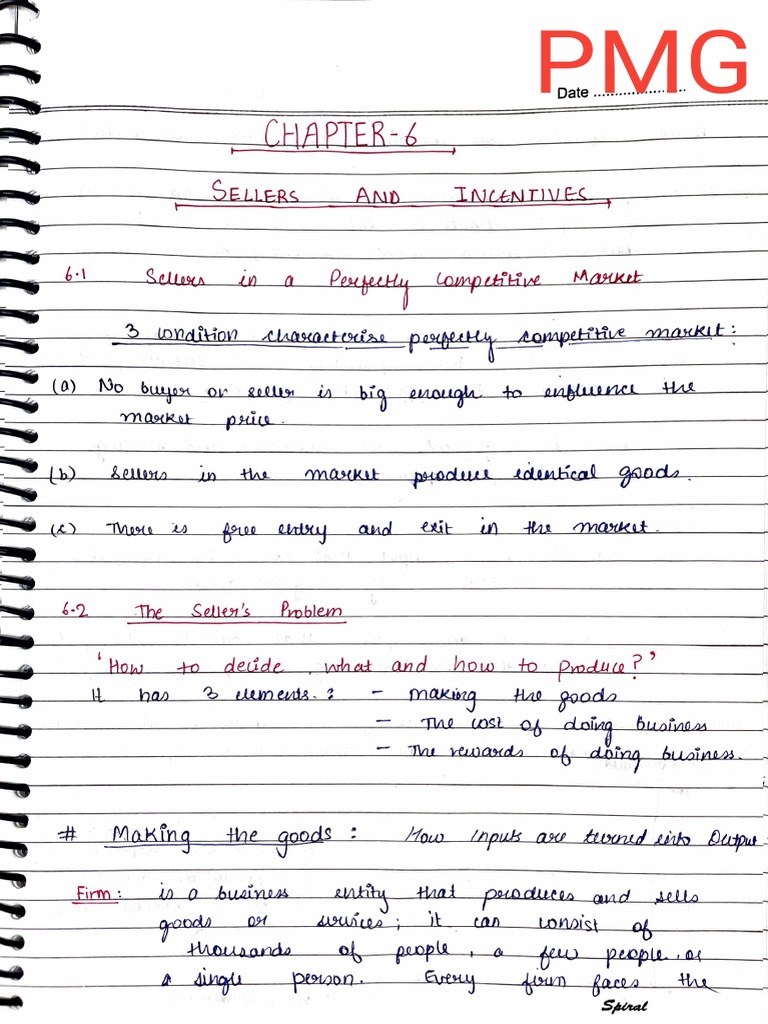 PMG
Date ......................
CHAPTER-6
SELLERS AND INCENTIVES
6.1 Sellers in a Perfectly Competitive Market
3 condition characterise perfectly competitive market:
(a) No buyer or seller is big enough to influence the
market price.
(b) Sellers in the market produce identical goods.
(c) There is free entry and exit in the market.
6.2 The Seller's Problem
'How to decide, what and how to produce?'
It has 3 elements.: - making the goods
- The cost of doing business
- The rewards of doing business.
# Making the goods: How Inputs are turned into Output
Firm: is a business entity that produces and sells
goods or services; it can consist of
thousands of people, a few people, or
a single person. Every firm faces the
Spiral